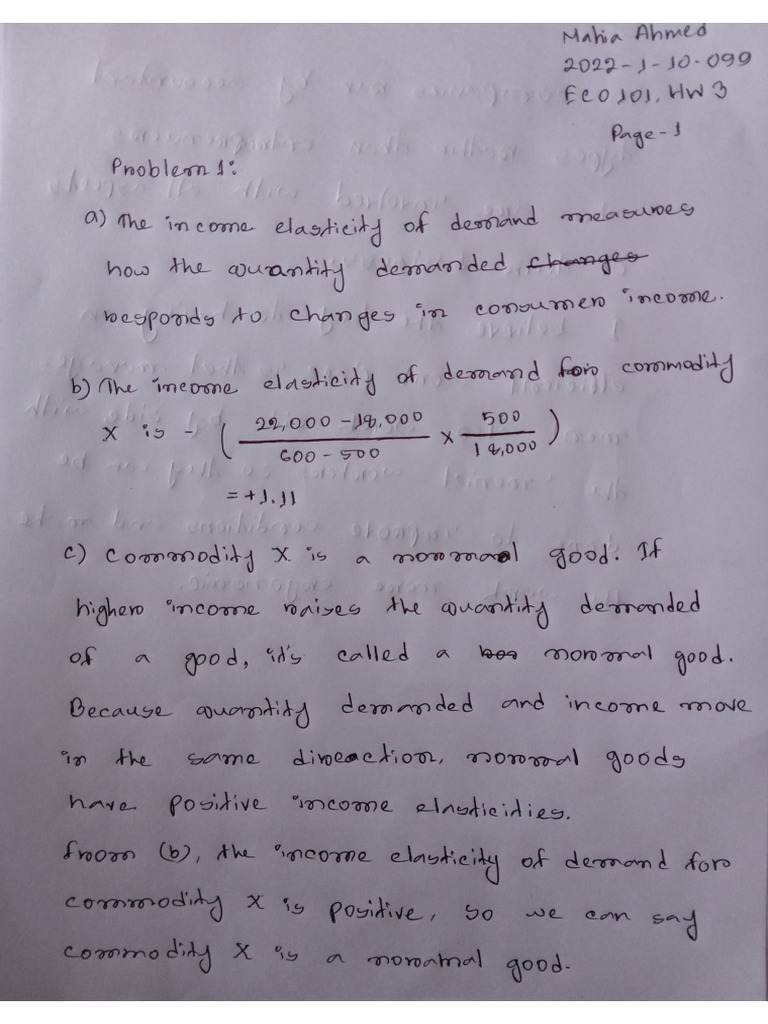 Mahia Ahmed
2022-1-10-099
ECO101, HW 3
Page-1
Problem 1:
a) The income elasticity of demand measures
how the quantity demanded changes
responds to changes in consumer income.
b) The income elasticity of demand for commodity
X is - ( 22,000 - 18,000 / 600 - 500 × 500 / 18,000 )
= +1.11
c) Commodity X is a normal good. If
higher income raises the quantity demanded
of a good, it's called a normal good.
Because quantity demanded and income move
in the same direaction, normal goods
have positive income elasticities.
From (b), the income elasticity of demand for
commodity X is positive, so we can say
commodity X is a normal good.